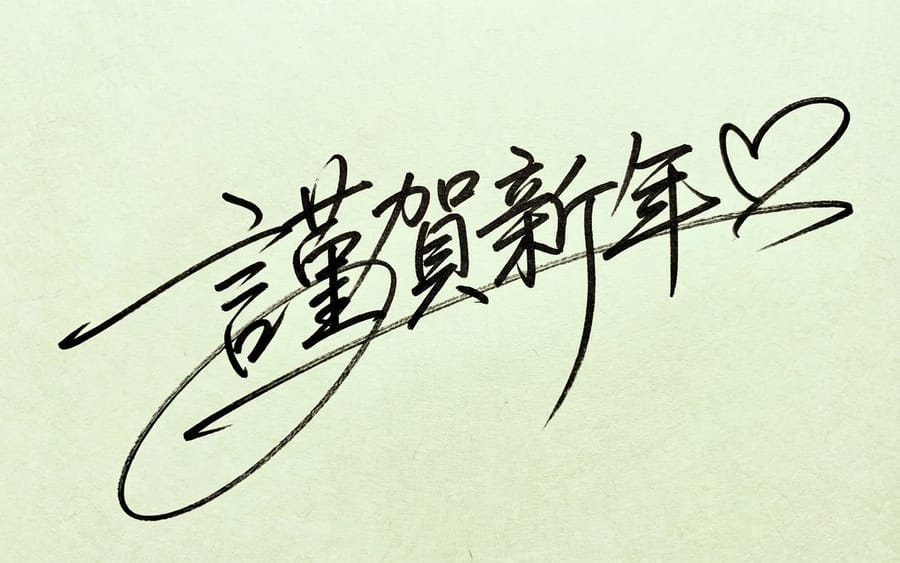 謹賀新年♡